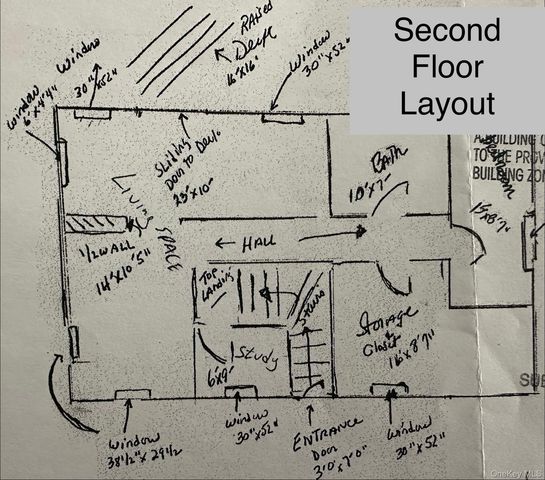 Second
Floor
Layout
RAISED
Deck
16'x16'
Window
30"x52"
Window
30"x52"
Window
6'x4'4"
Sliding
Door to Deck
23'x10"
Living SPACE
BATH
10'x7"
A BUILDING
TO THE PROV
BUILDING ZON
15'x8'7"
← HALL →
1/2 WALL
14'x10'5"
TOP
LANDING
STAIRS
Study
6'x9'
Storage
Closet
16'x8'7"
SU
Window
38 1/2" x 29 1/2
Window
30"x52"
ENTRANCE
Door
3'0"x7'0"
Window
30"x52"
OneKey MLS